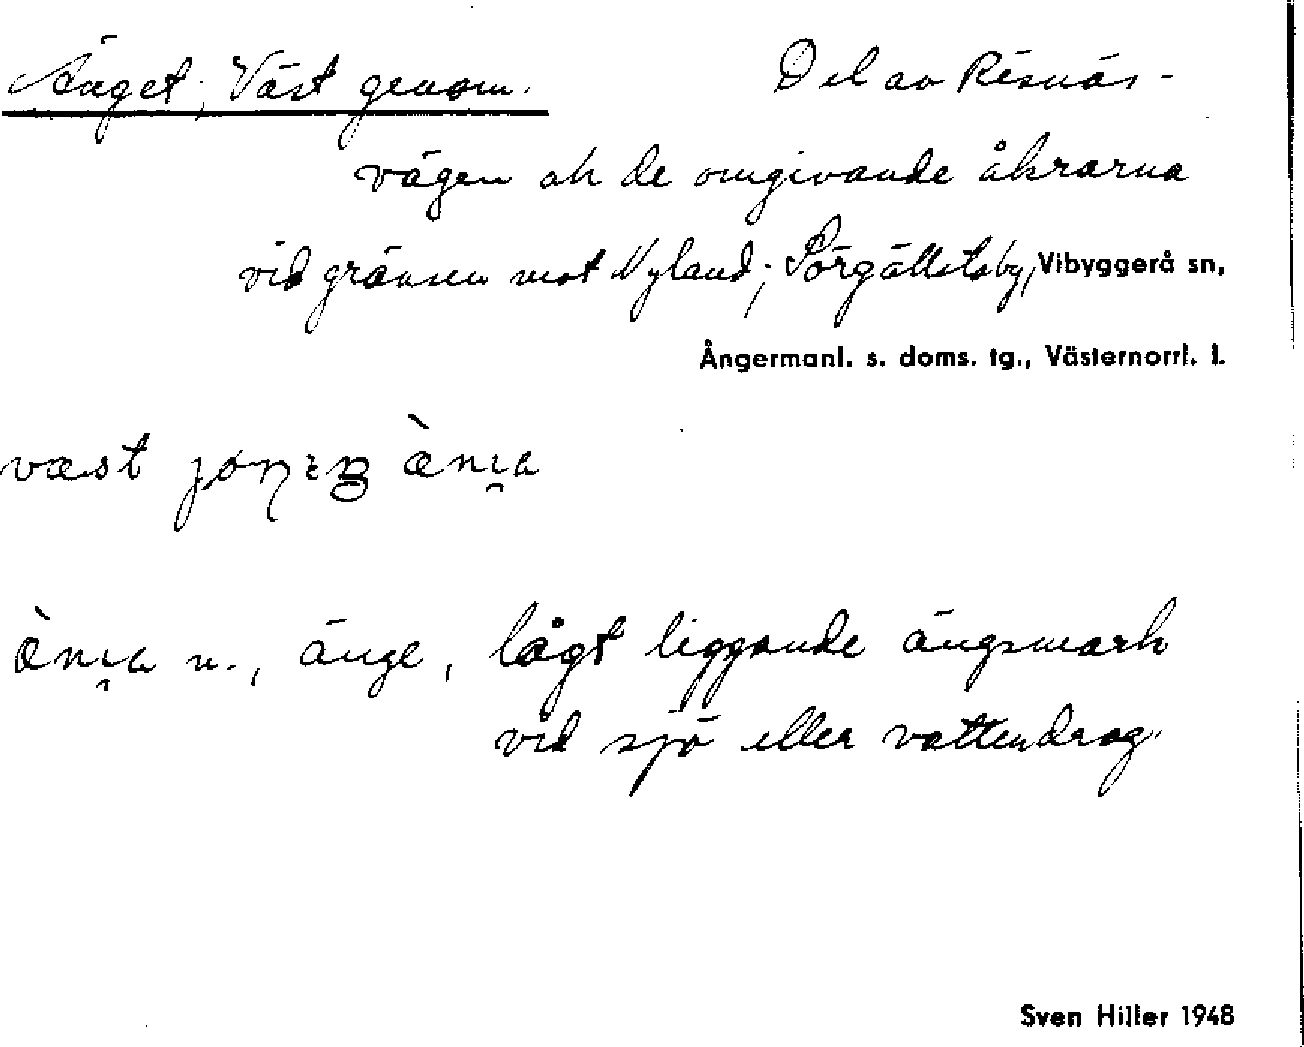 Änget, Väst genom. Del av Resnäs-
vägen och de omgivande åkrarna
vid gränsen mot Nyland; Sörgällstaby, Vibyggerå sn,
Ångermanl. s. doms. tg., Västernorrl. l.
væst
n., änge, lågt liggande ängsmark
vid sjö eller vattendrag.
Sven Hiller 1948